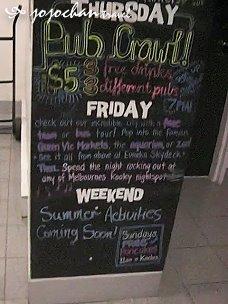 jojochan
THURSDAY
Pub Crawl!
$5 3 free drinks
3 different pubs
7PM!
FRIDAY
check out our incredible city with a free
tram or bus tour! Pop into the famous
Queen Vic Markets, the aquarium, or zoo!
see it all from above at Eureka Skydeck.
Then Spend the night rocking out at
any of Melbournes Kooley nightspots
WEEKEND
Summer Activities
Coming Soon!
Sundays
FREE
Pancakes
11am @